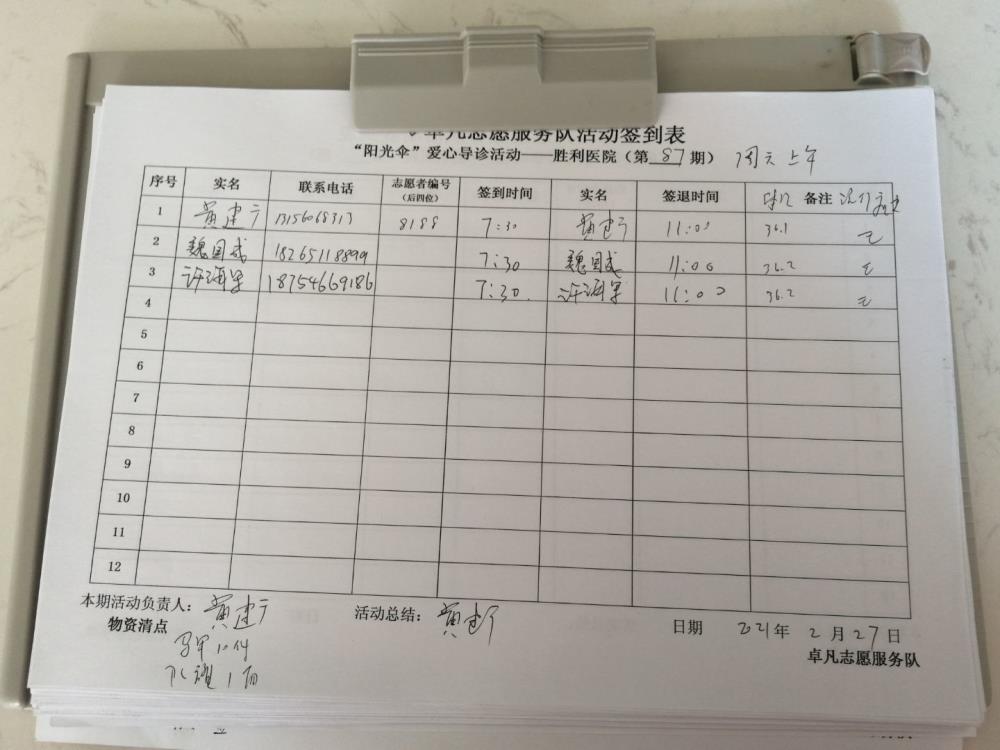 卓凡志愿服务队活动签到表
“阳光伞”爱心导诊活动——胜利医院（第 87 期） 周六上午
序号 实名 联系电话 志愿者编号（后四位） 签到时间 实名 签退时间 备注
1 黄建广 13156068313 8188 7:30 黄建广 11:00 36.1 无
2 魏国成 18265118899 7:30 魏国成 11:00 36.2 无
3 许海军 18754669186 7:30 许海军 11:00 36.2 无
4
5
6
7
8
9
10
11
12
本期活动负责人： 黄建广 活动总结： 黄建广 日期 2021年 2月27日
物资清点 卓凡志愿服务队